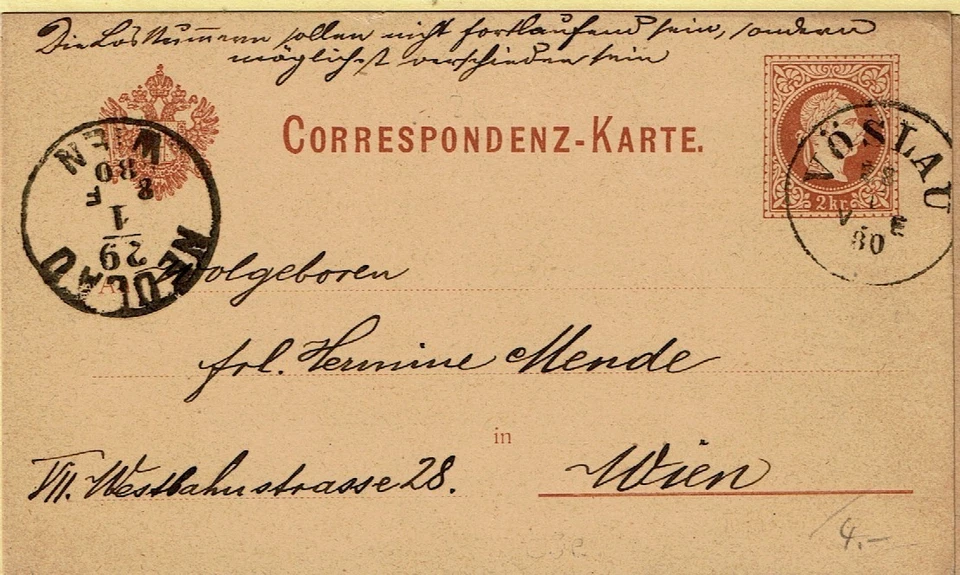 Die Losnummern sollen nicht fortlaufend sein, sondern
möglichst verschieden sein
CORRESPONDENZ-KARTE.
2 kr.
VÖSLAU
80
NEUBAU
WIEN
29
1
8 80
F
Wolgeboren
frl. Hermine Mende
in
VII. Westbahnstrasse 28.
Wien
4.-